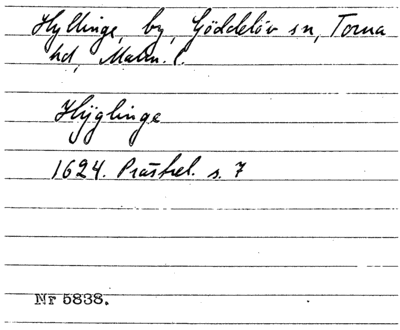 Hyllinge, by, Göddelöv sn, Torna
hd, Malm. l.
Hÿglinge
1624. Prästrel. s. 7
Nr 5838.